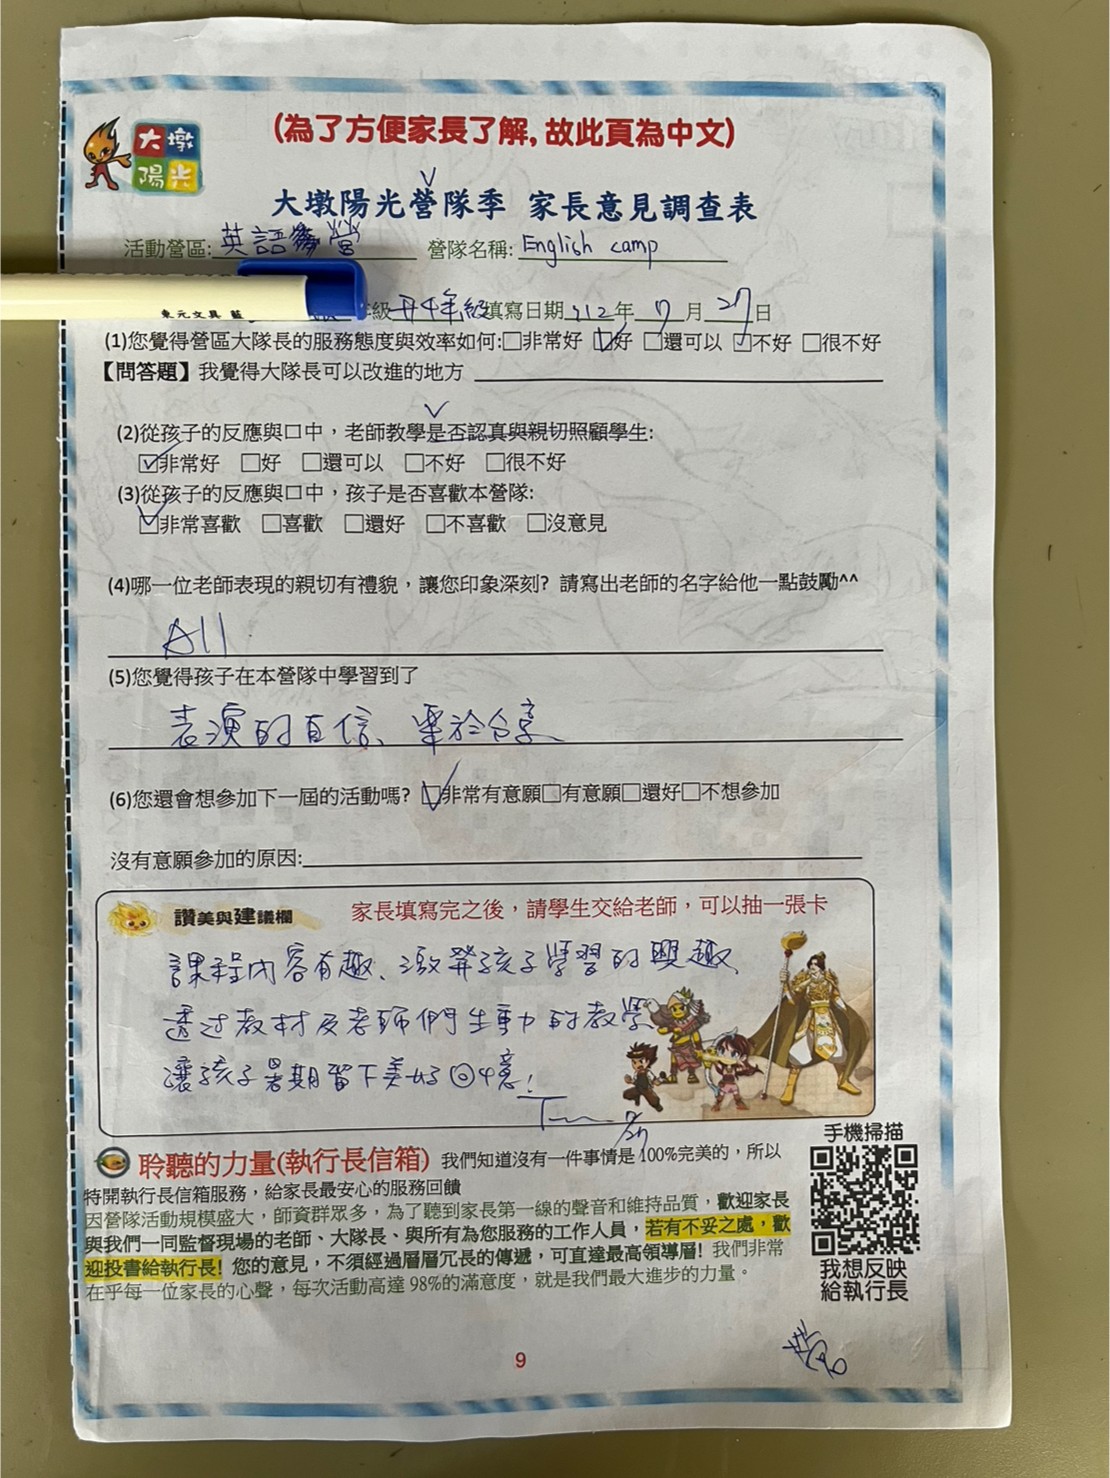 (為了方便家長了解,故此頁為中文)
大墩
陽光
大墩陽光營隊季 家長意見調查表
活動營區: 英語 營 營隊名稱: English camp
東元文具 藍
年級 升4年級 填寫日期 112 年 7 月 27 日
(1)您覺得營區大隊長的服務態度與效率如何:□非常好 ☑好 □還可以 ☑不好 □很不好
【問答題】我覺得大隊長可以改進的地方
(2)從孩子的反應與口中，老師教學是否認真與親切照顧學生:
☑非常好 □好 □還可以 □不好 □很不好
(3)從孩子的反應與口中，孩子是否喜歡本營隊:
☑非常喜歡 □喜歡 □還好 □不喜歡 □沒意見
(4)哪一位老師表現的親切有禮貌，讓您印象深刻? 請寫出老師的名字給他一點鼓勵^^
All
(5)您覺得孩子在本營隊中學習到了
表演的自信、樂於分享
(6)您還會想參加下一屆的活動嗎? ☑非常有意願□有意願□還好□不想參加
沒有意願參加的原因:
讚美與建議欄 家長填寫完之後，請學生交給老師，可以抽一張卡
課程內容有趣、激發孩子學習的興趣
透过教材及老師們生動的教學
讓孩子暑期留下美好回憶!
7/27
聆聽的力量(執行長信箱) 我們知道沒有一件事情是 100%完美的，所以
特開執行長信箱服務，給家長最安心的服務回饋
因營隊活動規模盛大，師資群眾多，為了聽到家長第一線的聲音和維持品質，歡迎家長
與我們一同監督現場的老師、大隊長、與所有為您服務的工作人員，若有不妥之處，歡
迎投書給執行長! 您的意見，不須經過層層冗長的傳遞，可直達最高領導層! 我們非常
在乎每一位家長的心聲，每次活動高達 98%的滿意度，就是我們最大進步的力量。
手機掃描
我想反映
給執行長
9